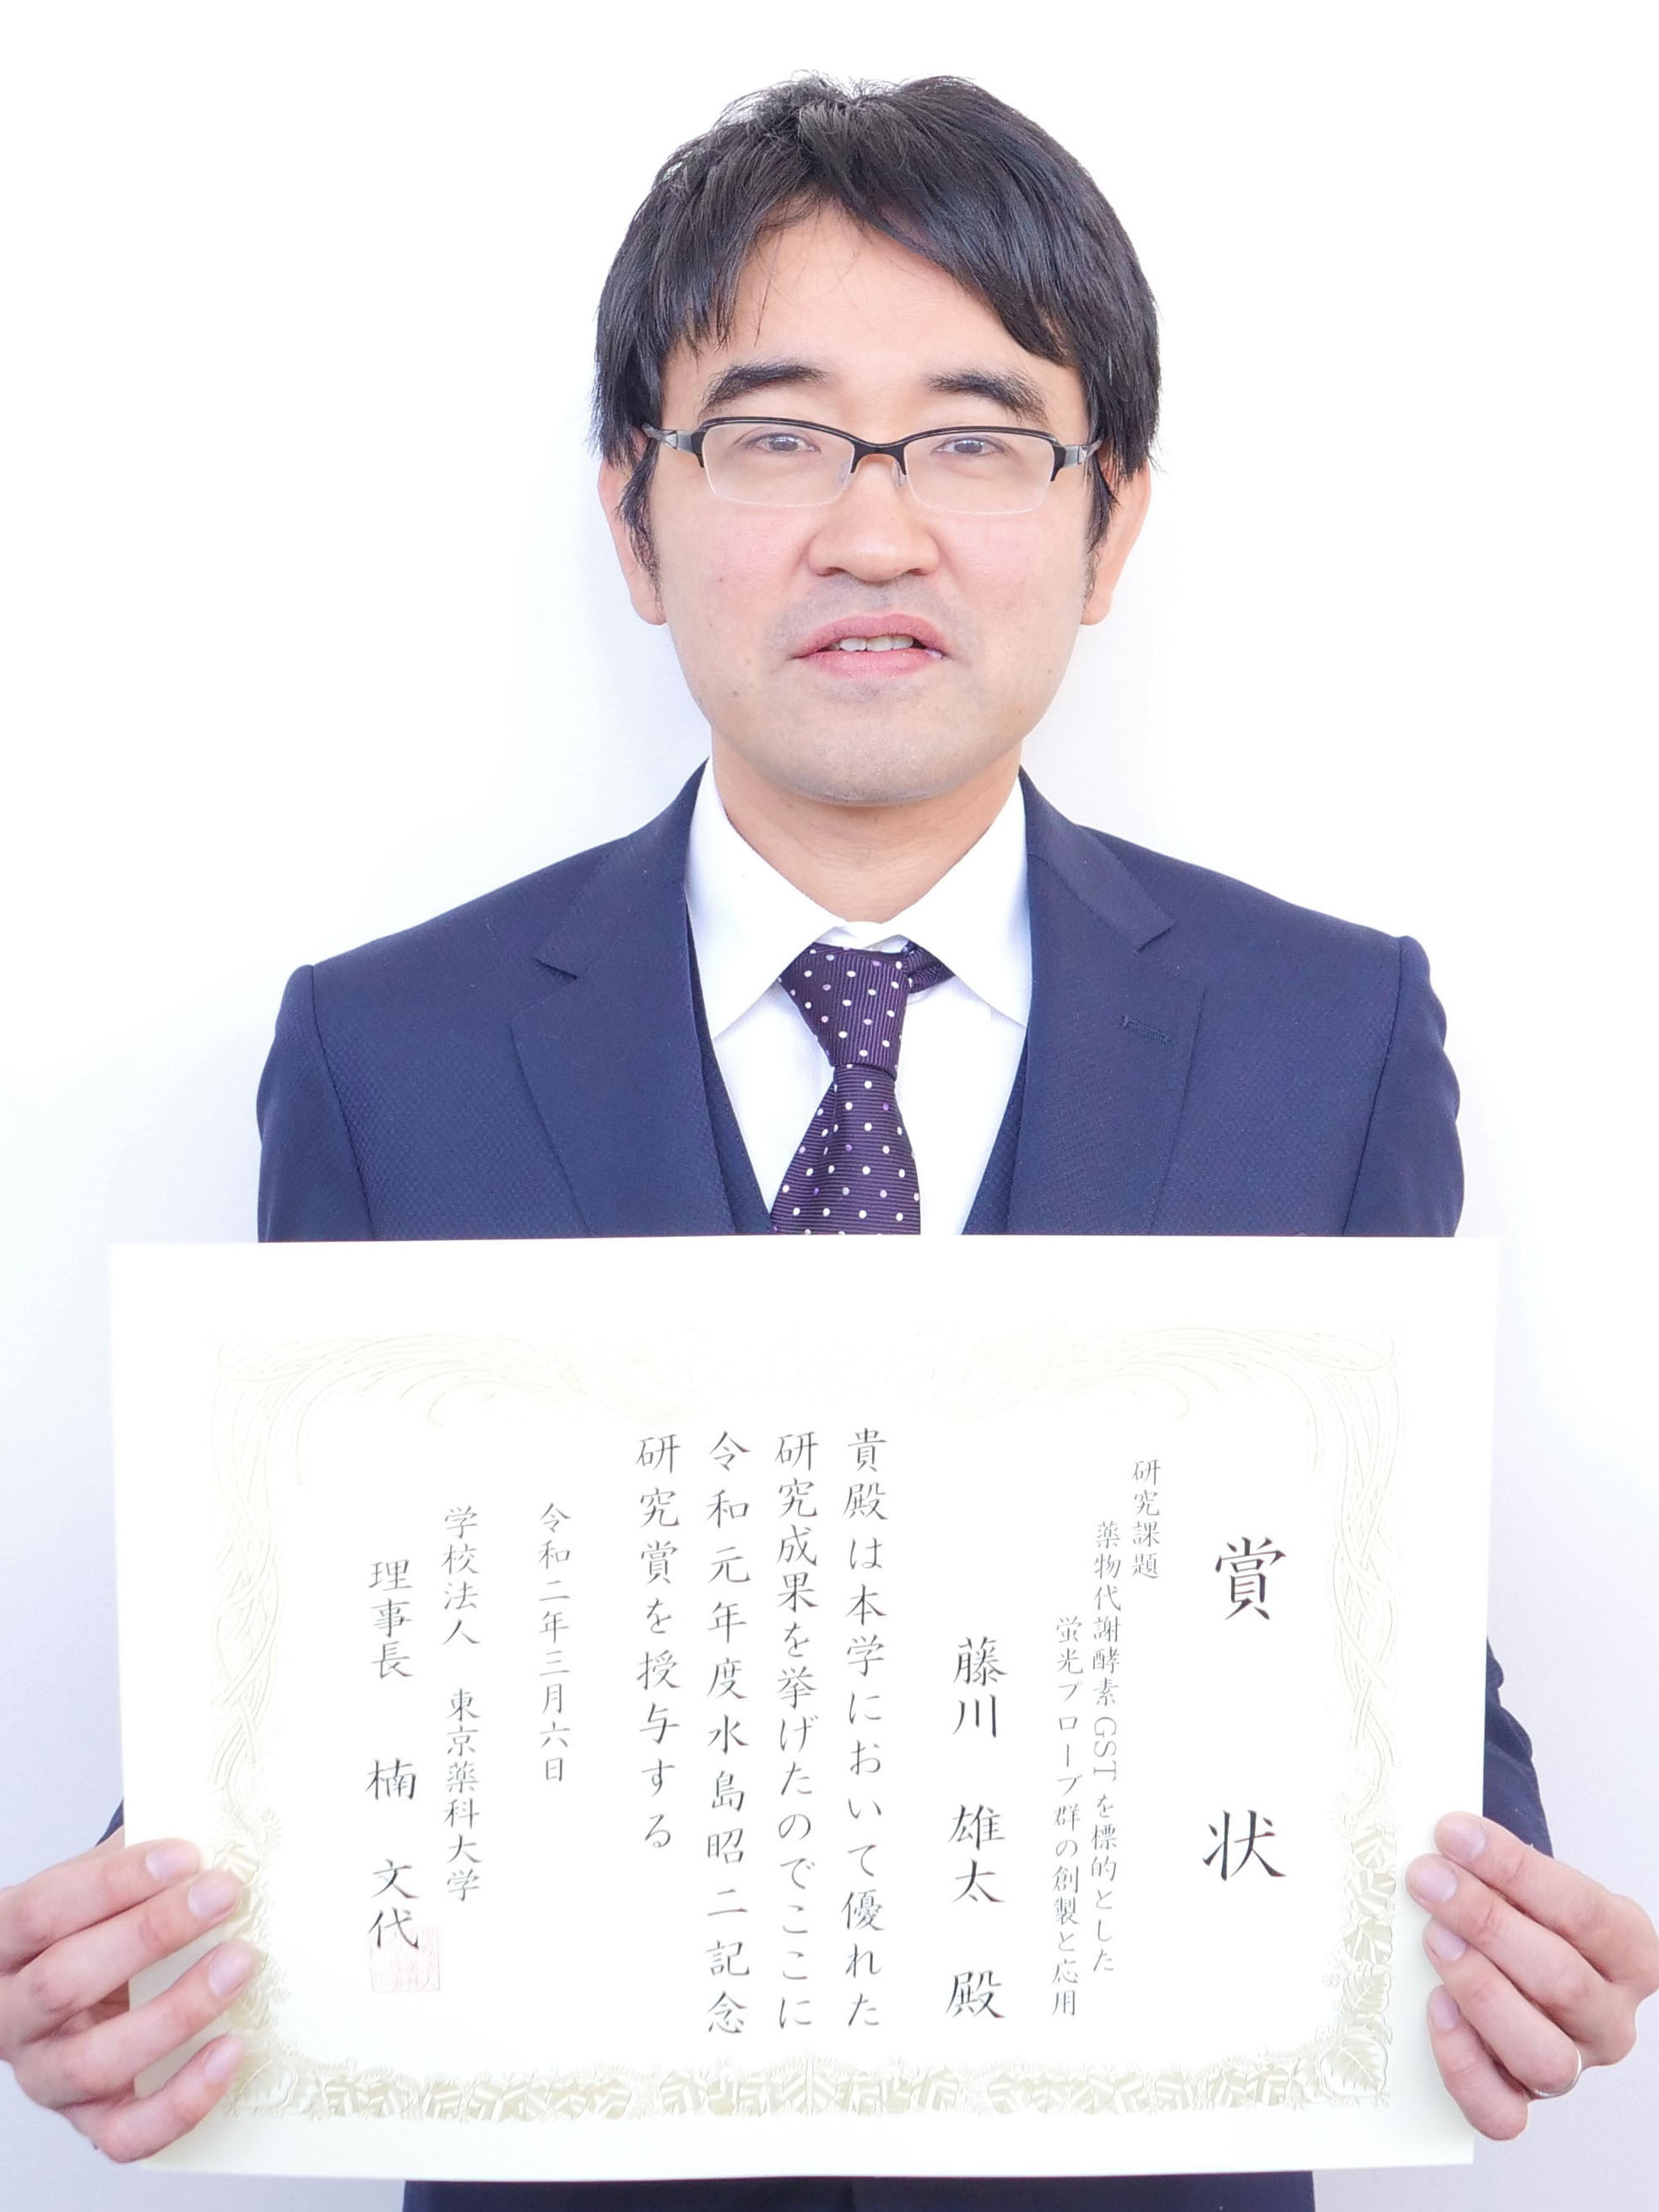 賞状
研究課題
薬物代謝酵素GSTを標的とした
蛍光プローブ群の創製と応用
藤川 雄太 殿
貴殿は本学において優れた
研究成果を挙げたのでここに
令和元年度水島昭二記念
研究賞を授与する
令和二年三月六日
学校法人 東京薬科大学
理事長 楠 文代